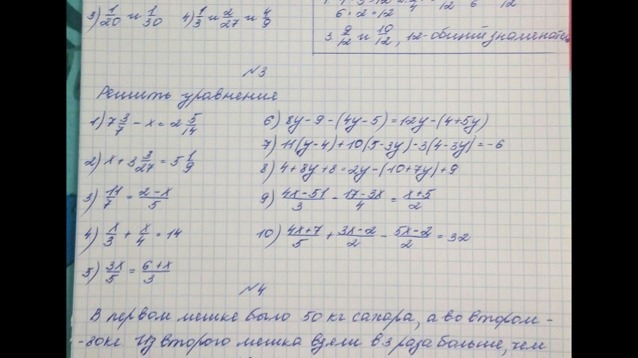 3) 1/20 и 1/30 4) 1/3 и 2/27 и 4/9
6·2=12
3. 9/12 и 10/12, 12-общий
№3
Решить уравнение
1) 7 3/7 - x = 2 5/14
2) x + 3 3/27 = 5 1/9
3) 11/7 = 2-x/5
4) x/3 + x/4 = 14
5) 3x/5 = 6+x/3
6) 8y-9-(4y-5)=12y-(4+5y)
7) 11(y-4)+10(5-3y)-3(4-3y)=-6
8) 4+8y+8=2y-(10+7y)+9
9) 4x-51/3 - 17-3x/4 = x+5/2
10) 4x+7/5 + 3x-2/2 - 5x-2/2 = 32
№4
В первом мешке было 50 кг сахара, а во втором -
-80кг Из второго мешка взяли в 3 раза больше, чем